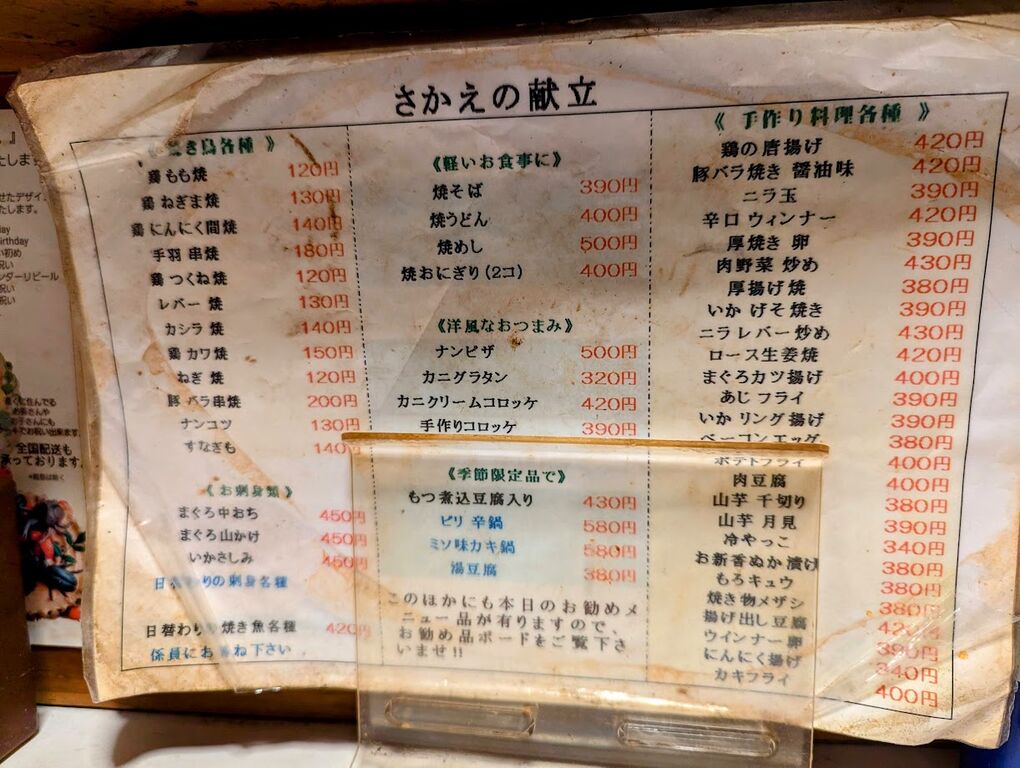 たしま
せたデザイ
たします。
day
Birthday
い初め
祝い
祝い
祝い
全国配送も
承っております。
さかえの献立
き鳥各種 》
鶏 もも焼 120円
鶏 ねぎま焼 130円
鶏 にんにく間焼 140円
手羽 串焼 180円
鶏 つくね焼 120円
レバー 焼 130円
カシラ 焼 140円
鶏 カワ焼 150円
ねぎ 焼 120円
豚 バラ串焼 200円
ナンコツ 130円
すなぎも 140
《 お刺身類 》
まぐろ中おち 450円
まぐろ山かけ 450円
いかさしみ 450円
日替わりの刺身各種
日替わり 焼き魚各種 420円
係員にお ね下さい
《軽いお食事に》
焼そば 390円
焼うどん 400円
焼めし 500円
焼おにぎり(2コ) 400円
《洋風なおつまみ》
ナンピザ 500円
カニグラタン 320円
カニクリームコロッケ 420円
手作りコロッケ 390円
《季節限定品で》
もつ煮込豆腐入り 430円
ピリ 辛鍋 580円
ミソ味カキ鍋 580円
湯豆腐 380円
このほかにも本日のお勧めメ
ニュー品が有りますので、
お勧め品ボードをご覧下さ
いませ!!
《 手作り料理各種 》
鶏の唐揚げ 420円
豚バラ焼き 醤油味 420円
ニラ玉 390円
辛口 ウィンナー 420円
厚焼き 卵 390円
肉野菜 炒め 430円
厚揚げ焼 380円
いか げそ焼き 390円
ニラレバー炒め 430円
ロース生姜焼 420円
まぐろカツ揚げ 400円
あじフライ 390円
いか リング揚げ 390円
ベーコンエッグ 380円
ポテトフライ 400円
肉豆腐 400円
山芋 千切り 380円
山芋 月見 390円
冷やっこ 340円
お新香ぬか漬け 380円
もろキュウ 380円
焼き物メザシ 380円
揚げ出し豆腐 420円
ウインナー卵 390円
にんにく揚げ 340円
カキフライ 400円